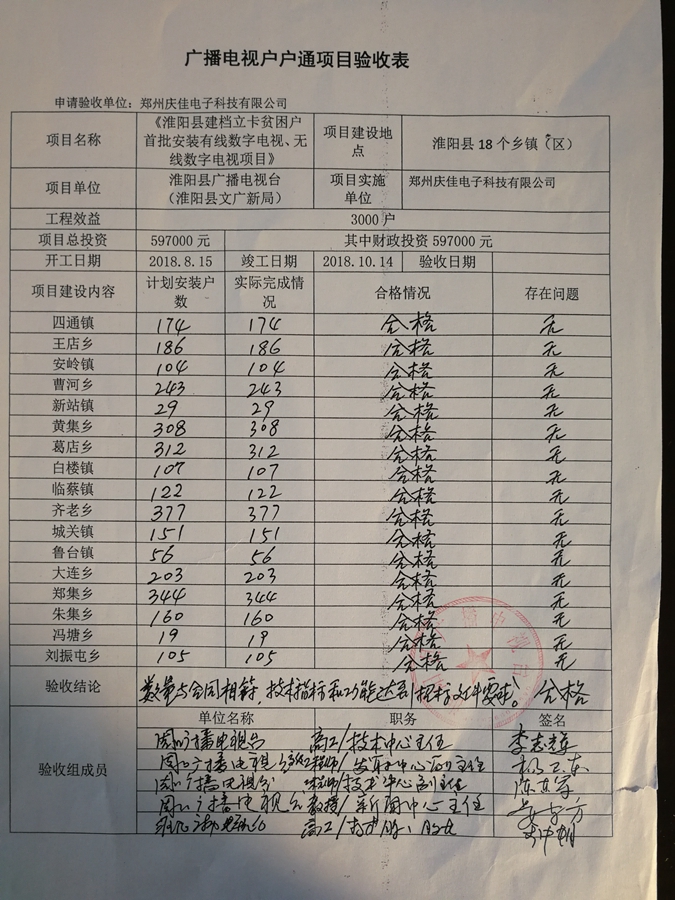 广播电视户户通项目验收表
申请验收单位：郑州庆佳电子科技有限公司
项目名称 《淮阳县建档立卡贫困户首批安装有线数字电视、无线数字电视项目》 项目建设地点 淮阳县 18 个乡镇（区）
项目单位 淮阳县广播电视台（淮阳县文广新局） 项目实施单位 郑州庆佳电子科技有限公司
工程效益 3000 户
项目总投资 597000 元 其中财政投资 597000 元
开工日期 2018.8.15 竣工日期 2018.10.14 验收日期
项目建设内容 计划安装户数 实际完成情况 合格情况 存在问题
四通镇 174 174 合格 无
王店乡 186 186 合格 无
安岭镇 104 104 合格 无
曹河乡 243 243 合格 无
新站镇 29 29 合格 无
黄集乡 308 308 合格 无
葛店乡 312 312 合格 无
白楼镇 107 107 合格 无
临蔡镇 122 122 合格 无
齐老乡 377 377 合格 无
城关镇 151 151 合格 无
鲁台镇 56 56 合格 无
大连乡 203 203 合格 无
郑集乡 344 344 合格 无
朱集乡 160 160 合格 无
冯塘乡 19 19 合格 无
刘振屯乡 105 105 合格 无
验收结论 数量与合同相符，技术指标和功能达到招标文件要求。合格
验收组成员 单位名称 职务 签名
周口广播电视台 高工/技术中心主任 李志
周口广播电视台
周口广播电视台 工程师/技术中心副主任
周口广播电视台 教授/新闻中心主任
高工/技术